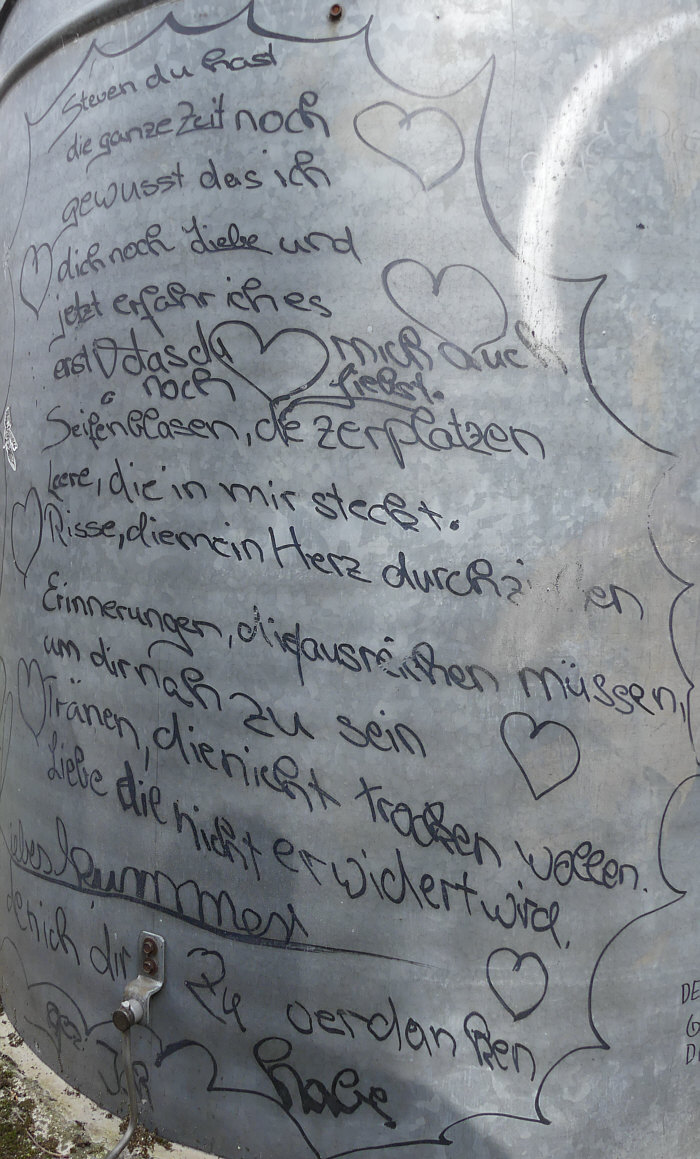 Steven du hast
die ganze Zeit noch
gewusst das ich
dich noch Liebe und
jetzt erfahr ich es
erst das du mich auch
noch Liebst.
Seifenblasen, die zerplatzen
Leere, die in mir steckt.
Risse, die mein Herz
Erinnerungen, die ausreichen müssen,
um dir nah zu sein
Tränen, die nicht trocken wollen.
Liebe die nicht erwidert wird.
Kummer
den ich dir zu verdanken
habe
DE